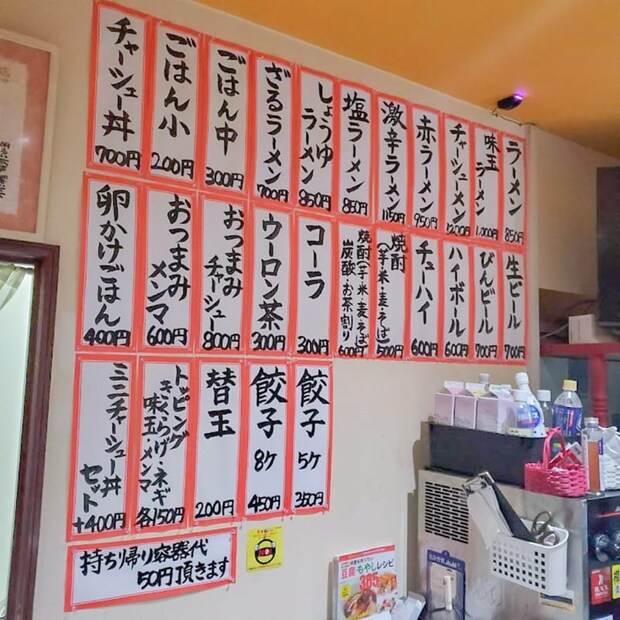 ラーメン
850円
味玉
ラーメン
1,000円
チャーシューメン
1200円
赤ラーメン
950円
激辛ラーメン
1150円
塩ラーメン
850円
しょうゆ
ラーメン
850円
ざるラーメン
700円
ごはん中
300円
ごはん小
200円
チャーシュー丼
700円
生ビール
700円
びんビール
700円
ハイボール
600円
チューハイ
600円
焼酎
(芋・米・麦・そば)
500円
焼酎(芋・米・麦・そば)
炭酸・お茶割り
600円
コーラ
300円
ウーロン茶
300円
おつまみ
チャーシュー
800円
おつまみ
メンマ
600円
卵かけごはん
400円
餃子
5ケ
350円
餃子
8ケ
450円
替玉
200円
トッピング
きくらげ・ネギ
味玉・メンマ
各150円
ミニチャーシュー丼
セット
+400円
持ち帰り容器代
50円頂きます
豆腐・もやしレシピ